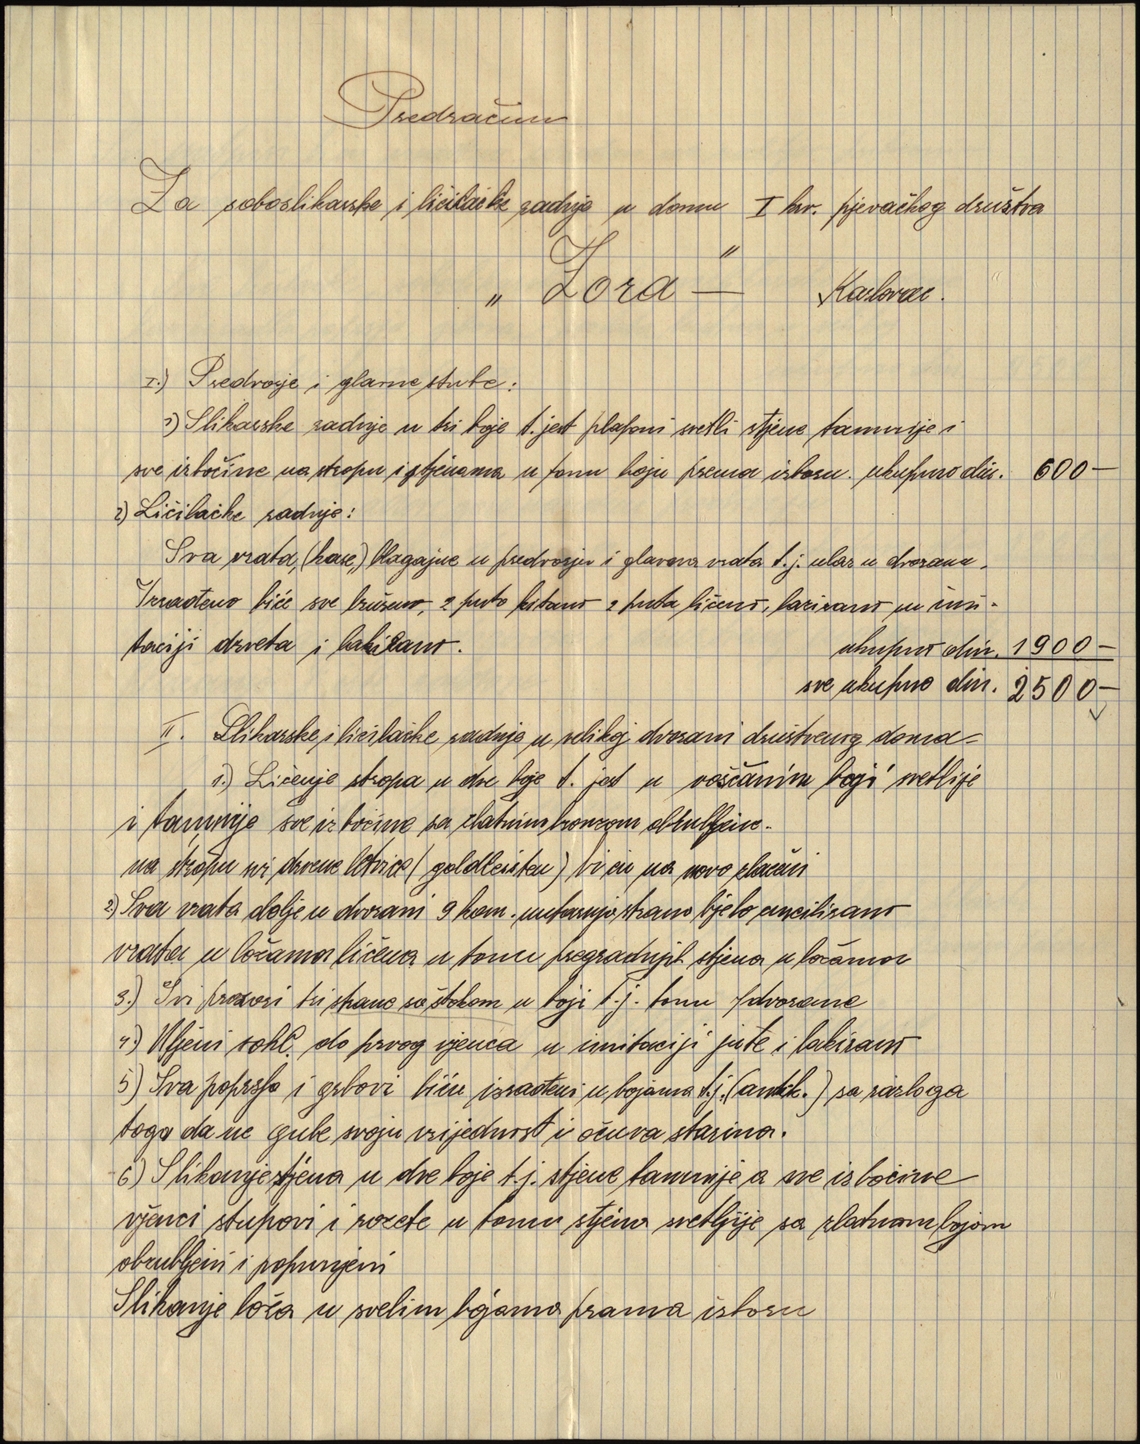 Predračun
Za soboslikarske i ličilačke radnje u domu I hrv. pjevačkog društva
„ Zora — "  Karlovac.
I.) Predvorje i glavne stube:
1) Slikarske radnje u tri boje t. jest plafoni svetli stjene tamnije i
sve izbočine na stropu i stjenama u tonu boju prema izboru. ukupno din. 600—
2) Ličilačke radnje:
Sva vrata, (kase,) blagajne u predvorju i glavna vrata t.j. ulaz u dvoranu.
Izrađeno biće sve brušeno, 2 puta kitano 2 puta ličeno, lazirano u imi-
taciji drveta i lakirano. ukupno din. 1900—
sve ukupno din. 2500—
II. Slikarske i ličilačke radnje u velikoj dvorani društvenog doma=
1.) Ličenje stropa u dve boje t. jest u voščanim boji svetlije
i tamnije sve izbočine sa zlatnim bronzom obrubljene.
na stropu svi drvene letvice (goldleisten) bi ću na novo zlaćeni
2) Sva vrata dolje u dvorani 9 kom. unutarnja strana bjelo emcilirano
vrata u ložama ličena u tonu pregradnjih stjena u ložama
3.) Svi prozori tri strane sa štokom u boji t.j. tonu dvorane
4.) Uljeni sokl. do prvog vjenca u imitaciji jute i lakirano
5) Sva poprsja i grbovi biću izrađeni u bojama t.j. (antik.) sa razloga
toga da ne gube svoju vrijednost i očuva starina.
6) Slikanje stjena u dve boje t.j. stjene tamnije a sve izbočine
vjenci stupovi i rozete u tonu stjena svetljije sa zlatnom bojom
obrubljeni i popunjeni
Slikanje loža u svelim bojama prama izboru